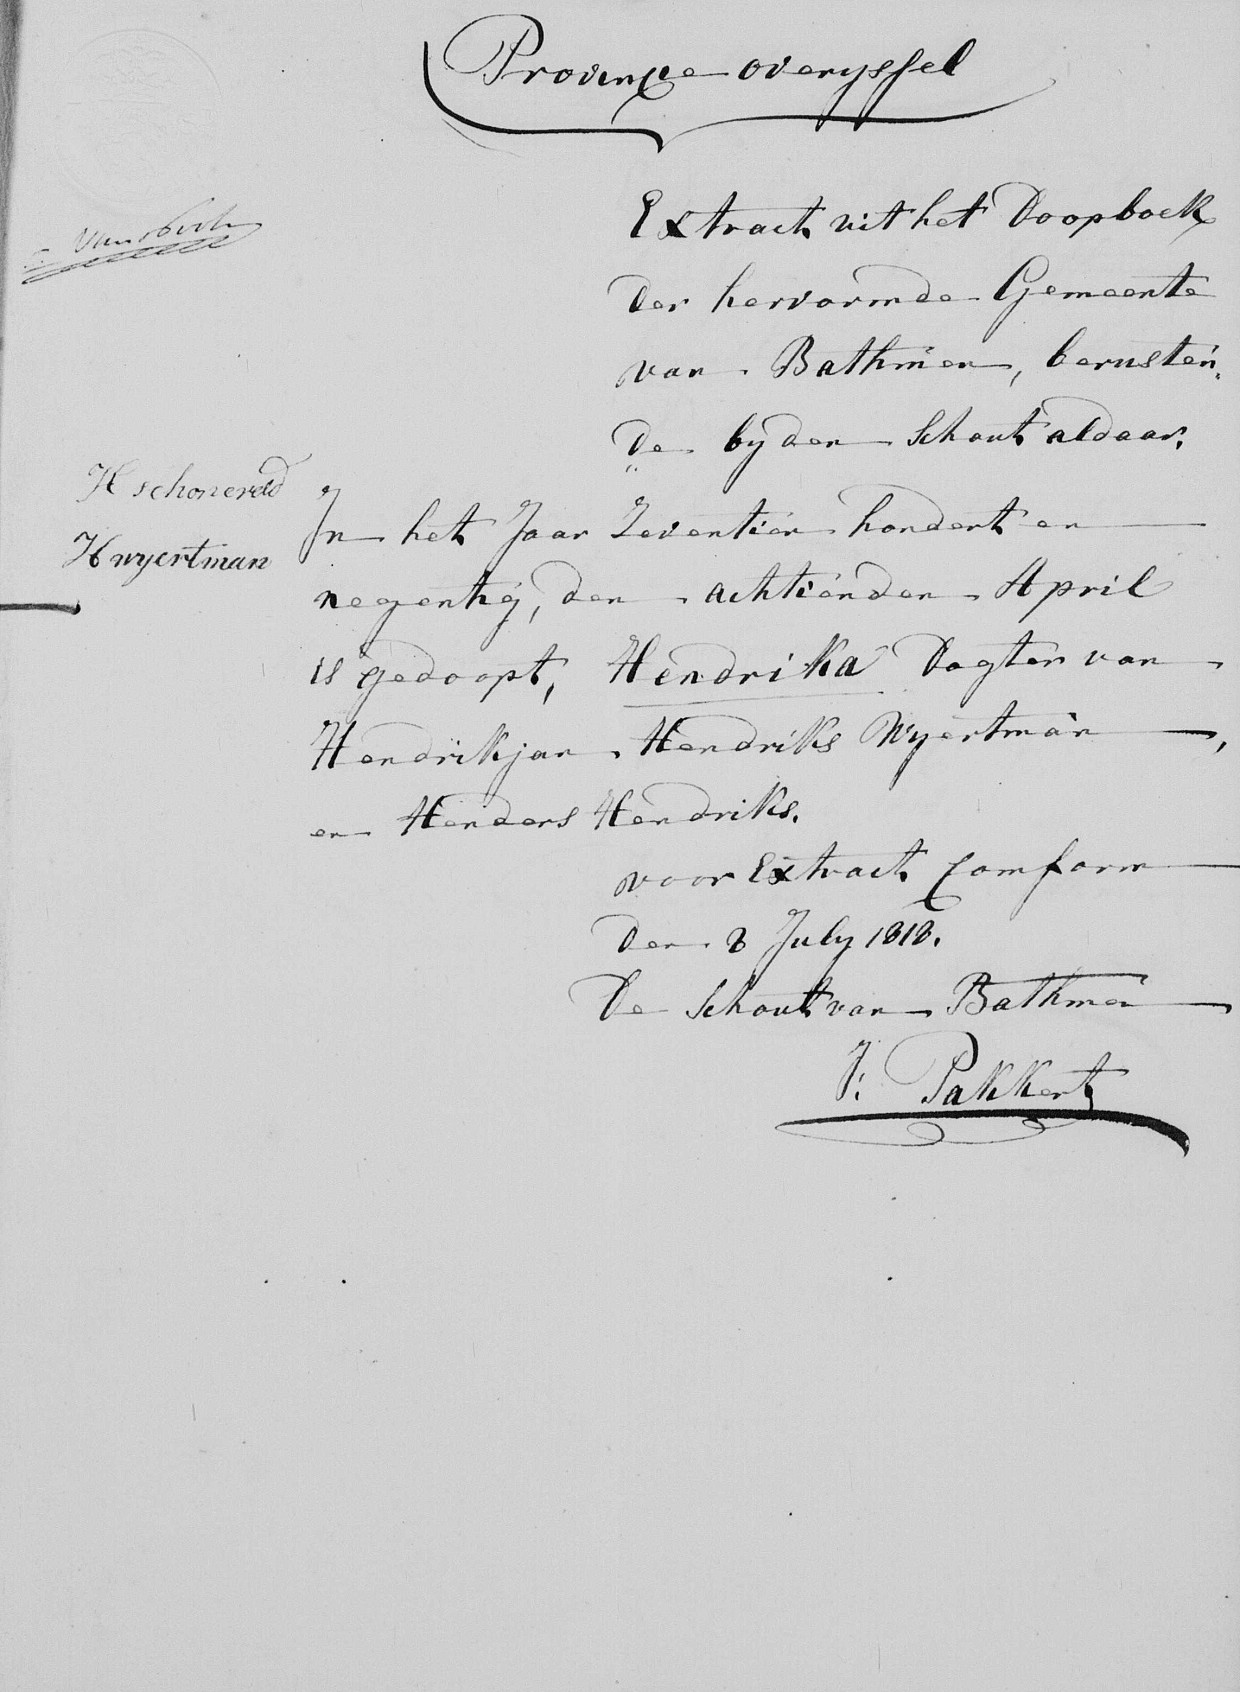 Provincie overyssel
Extract uit het Doopboek
der hervormde Gemeente
van Bathmen, berusten
de by den Schout aldaar.
H schoneveld
H wyertman
In het Jaar Zeventien hondert en
negentig, den achtienden April
is gedoopt, Hendrika Dogter van
Hendrikjan Hendriks Wyertman,
en Henders Hendriks.
voor Extract Comform
den 8 July 1818.
De Schout van Bathmen
J: Pakkert